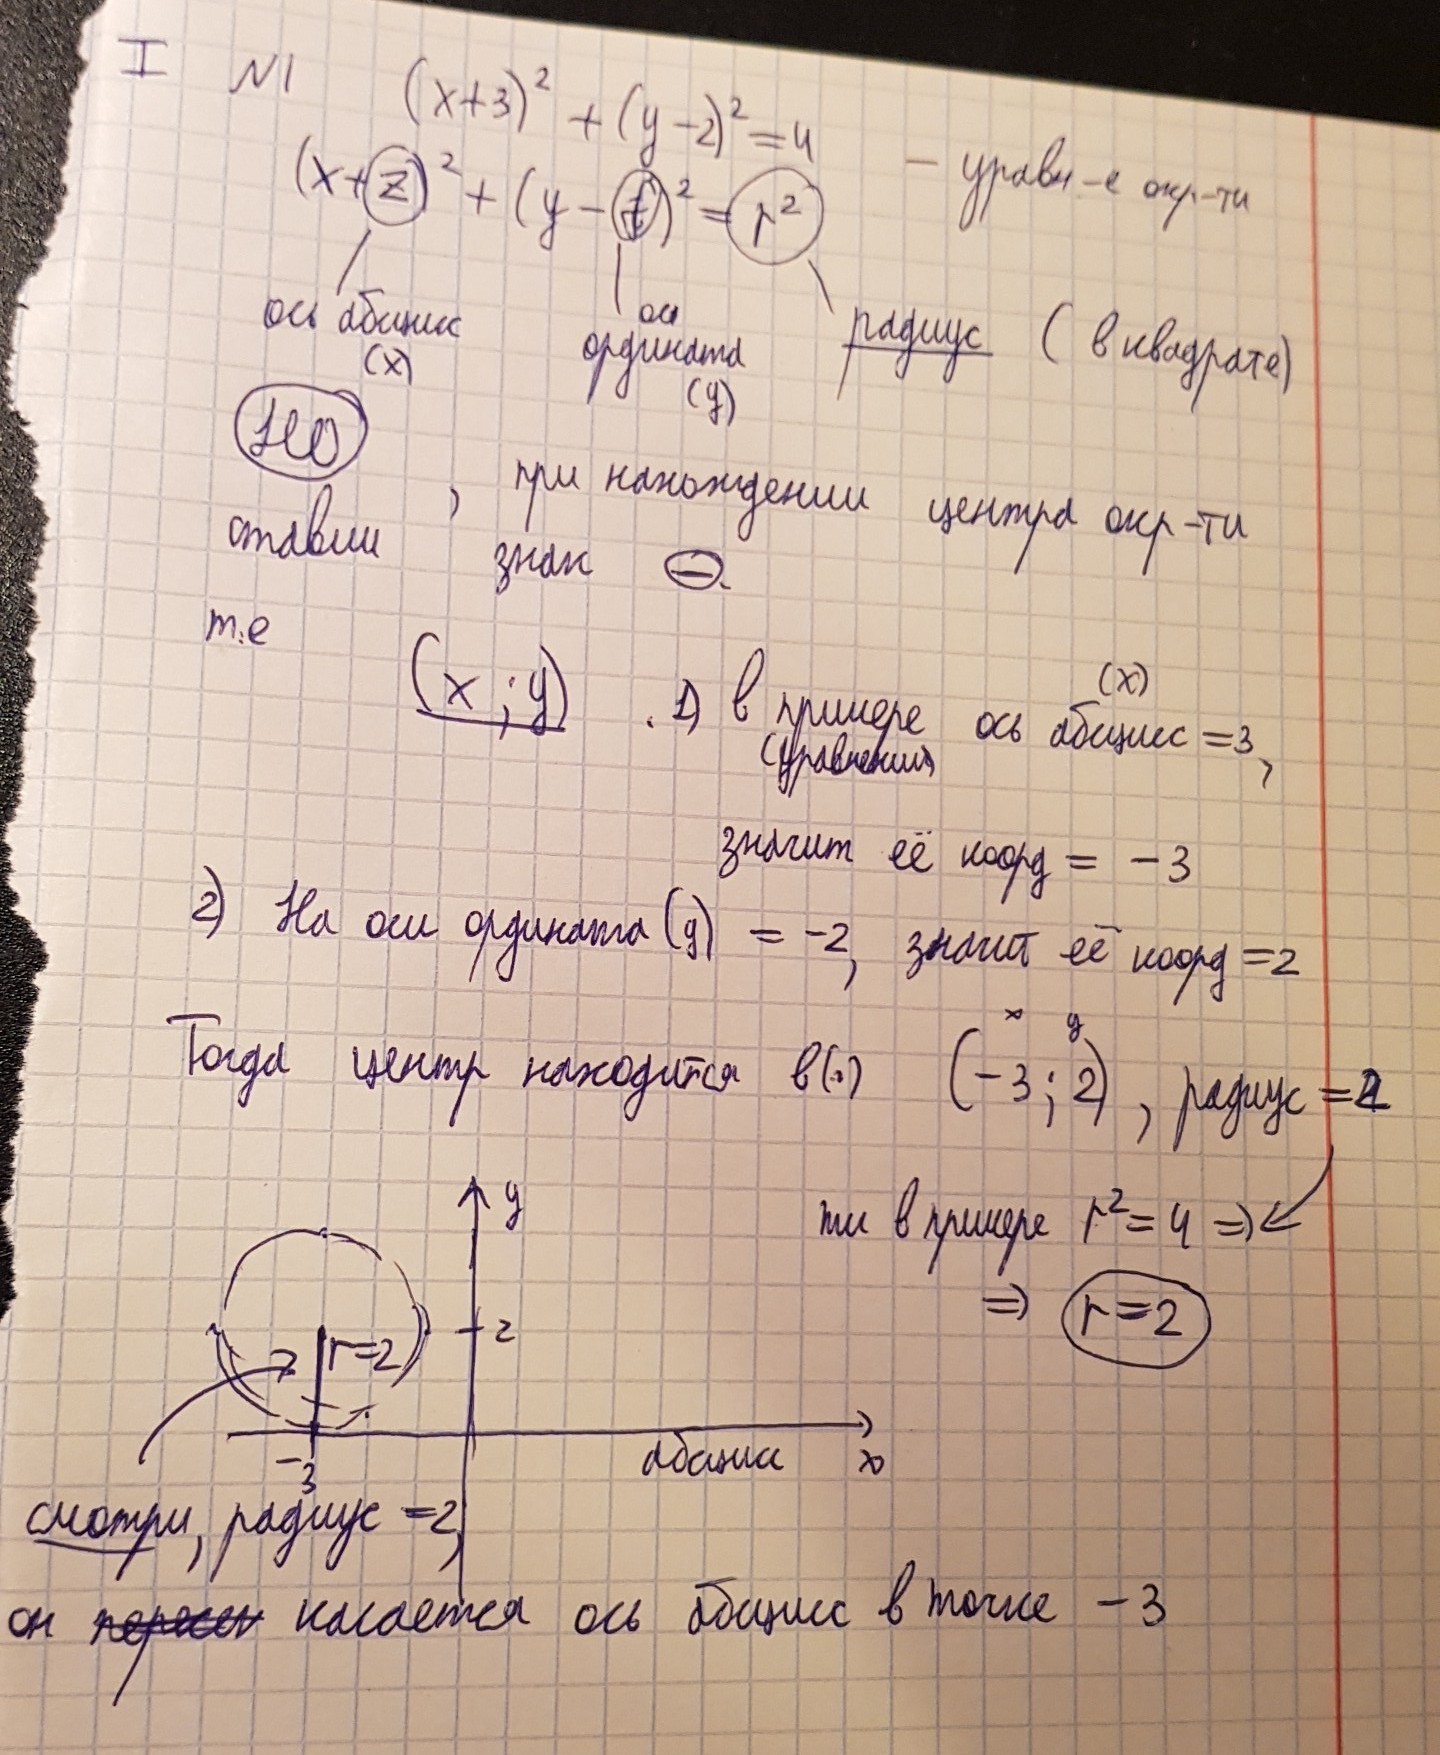 I N1 (x+3)² + (y-2)² = 4
(x+z)² + (y-t)² = r² - уравн-е окр-ти
ось абсцисс ось ордината радиус (в квадрате)
(x) (y)
Но, при нахождении центра окр-ти
ставим знак ⊖.
т.е (x ; y) . 1) в примере ось абсцисс = 3,
(x)
(уравнении)
значит её коорд = -3
2) На оси ордината (y) = -2, значит её коорд = 2
x y
Тогда центр находится в (·) (-3; 2), радиус = 2
тк в примере r² = 4 =>
=> r=2
y
2
r=2
-3
абсцисс x
смотри, радиус = 2,
он касается ось абсцисс в точке -3